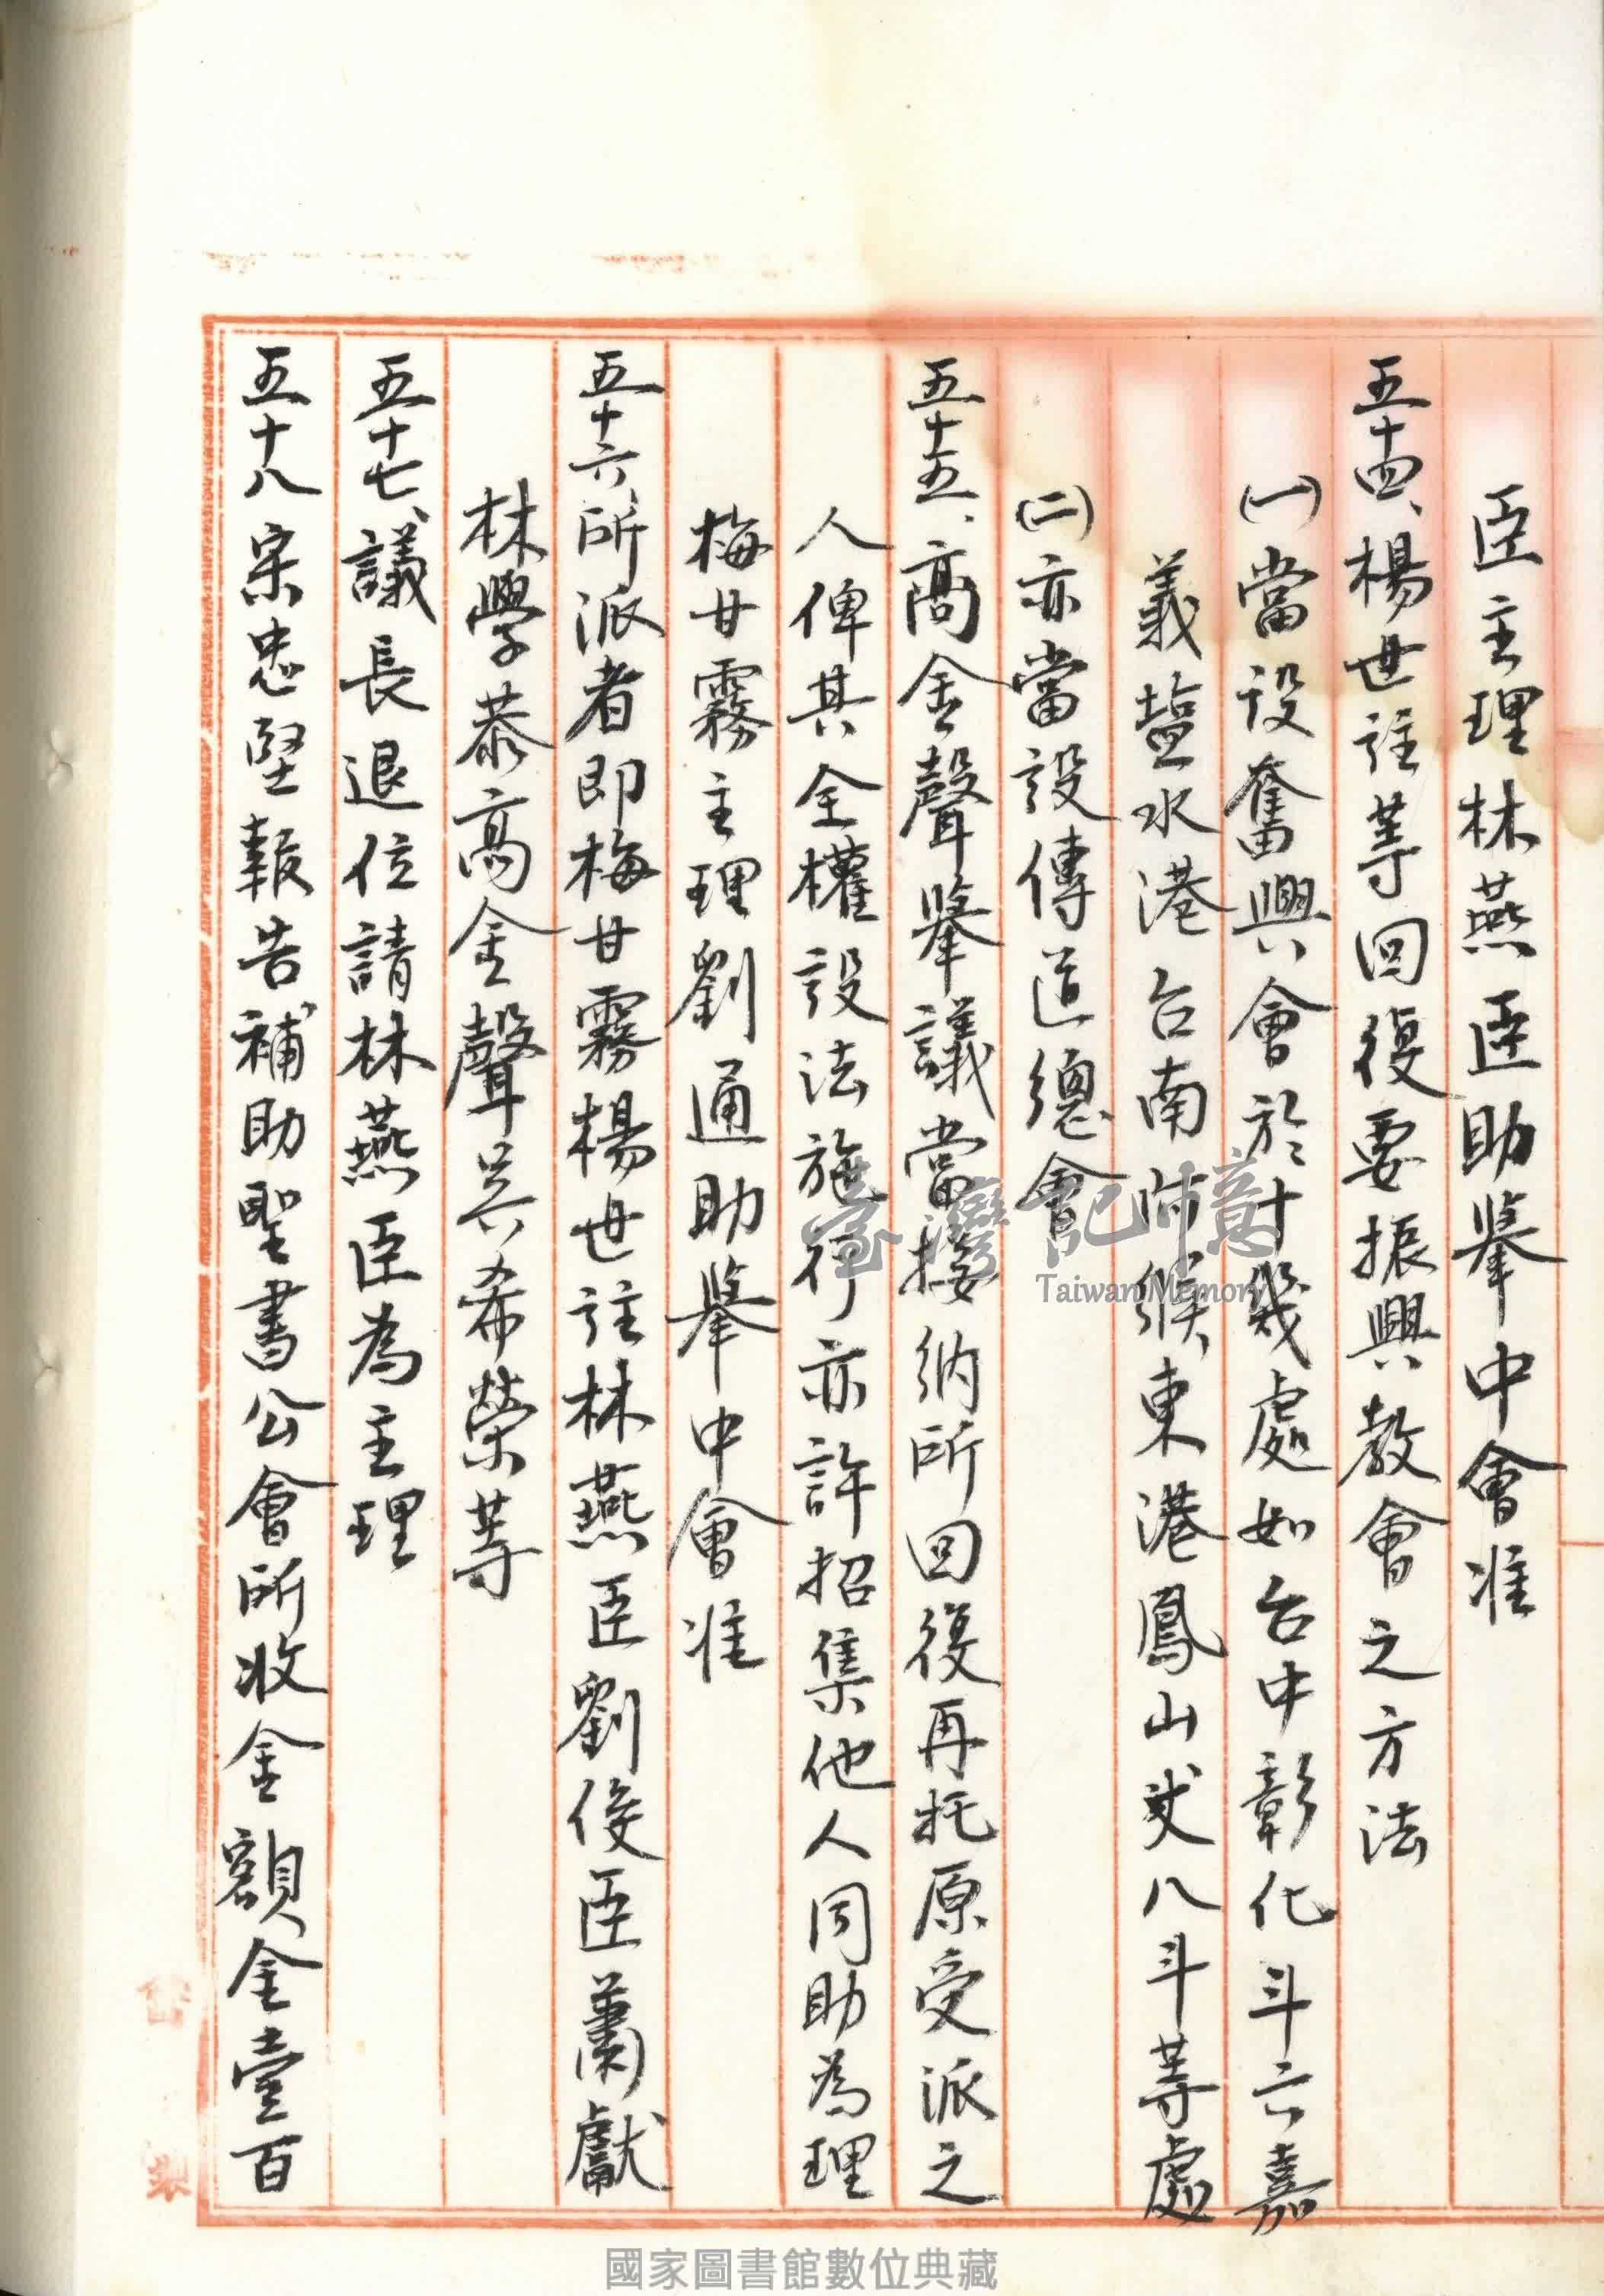 臣主理林燕臣助舉中會准
五十四、楊世註等回復要振興教會之方法
(一)當設奮興會於十幾處如台中彰化斗六嘉
義塩水港台南阿猴東港鳳山八斗等處
(二)亦當設傳道總會
五十五、高金聲舉議當接納所回復再托原受派之
人俾其全權設法施行亦許招集他人同助為理
梅甘霧主理劉通助舉中會准
五十六、所派者即梅甘霧楊世註林燕臣劉俊臣蕭獻
林學恭高金聲吳希榮等
五十七、議長退位請林燕臣為主理
五十八宋忠堅報告補助聖書公會所收金額金壹百
臺灣記憶
Taiwan Memory
國家圖書館數位典藏